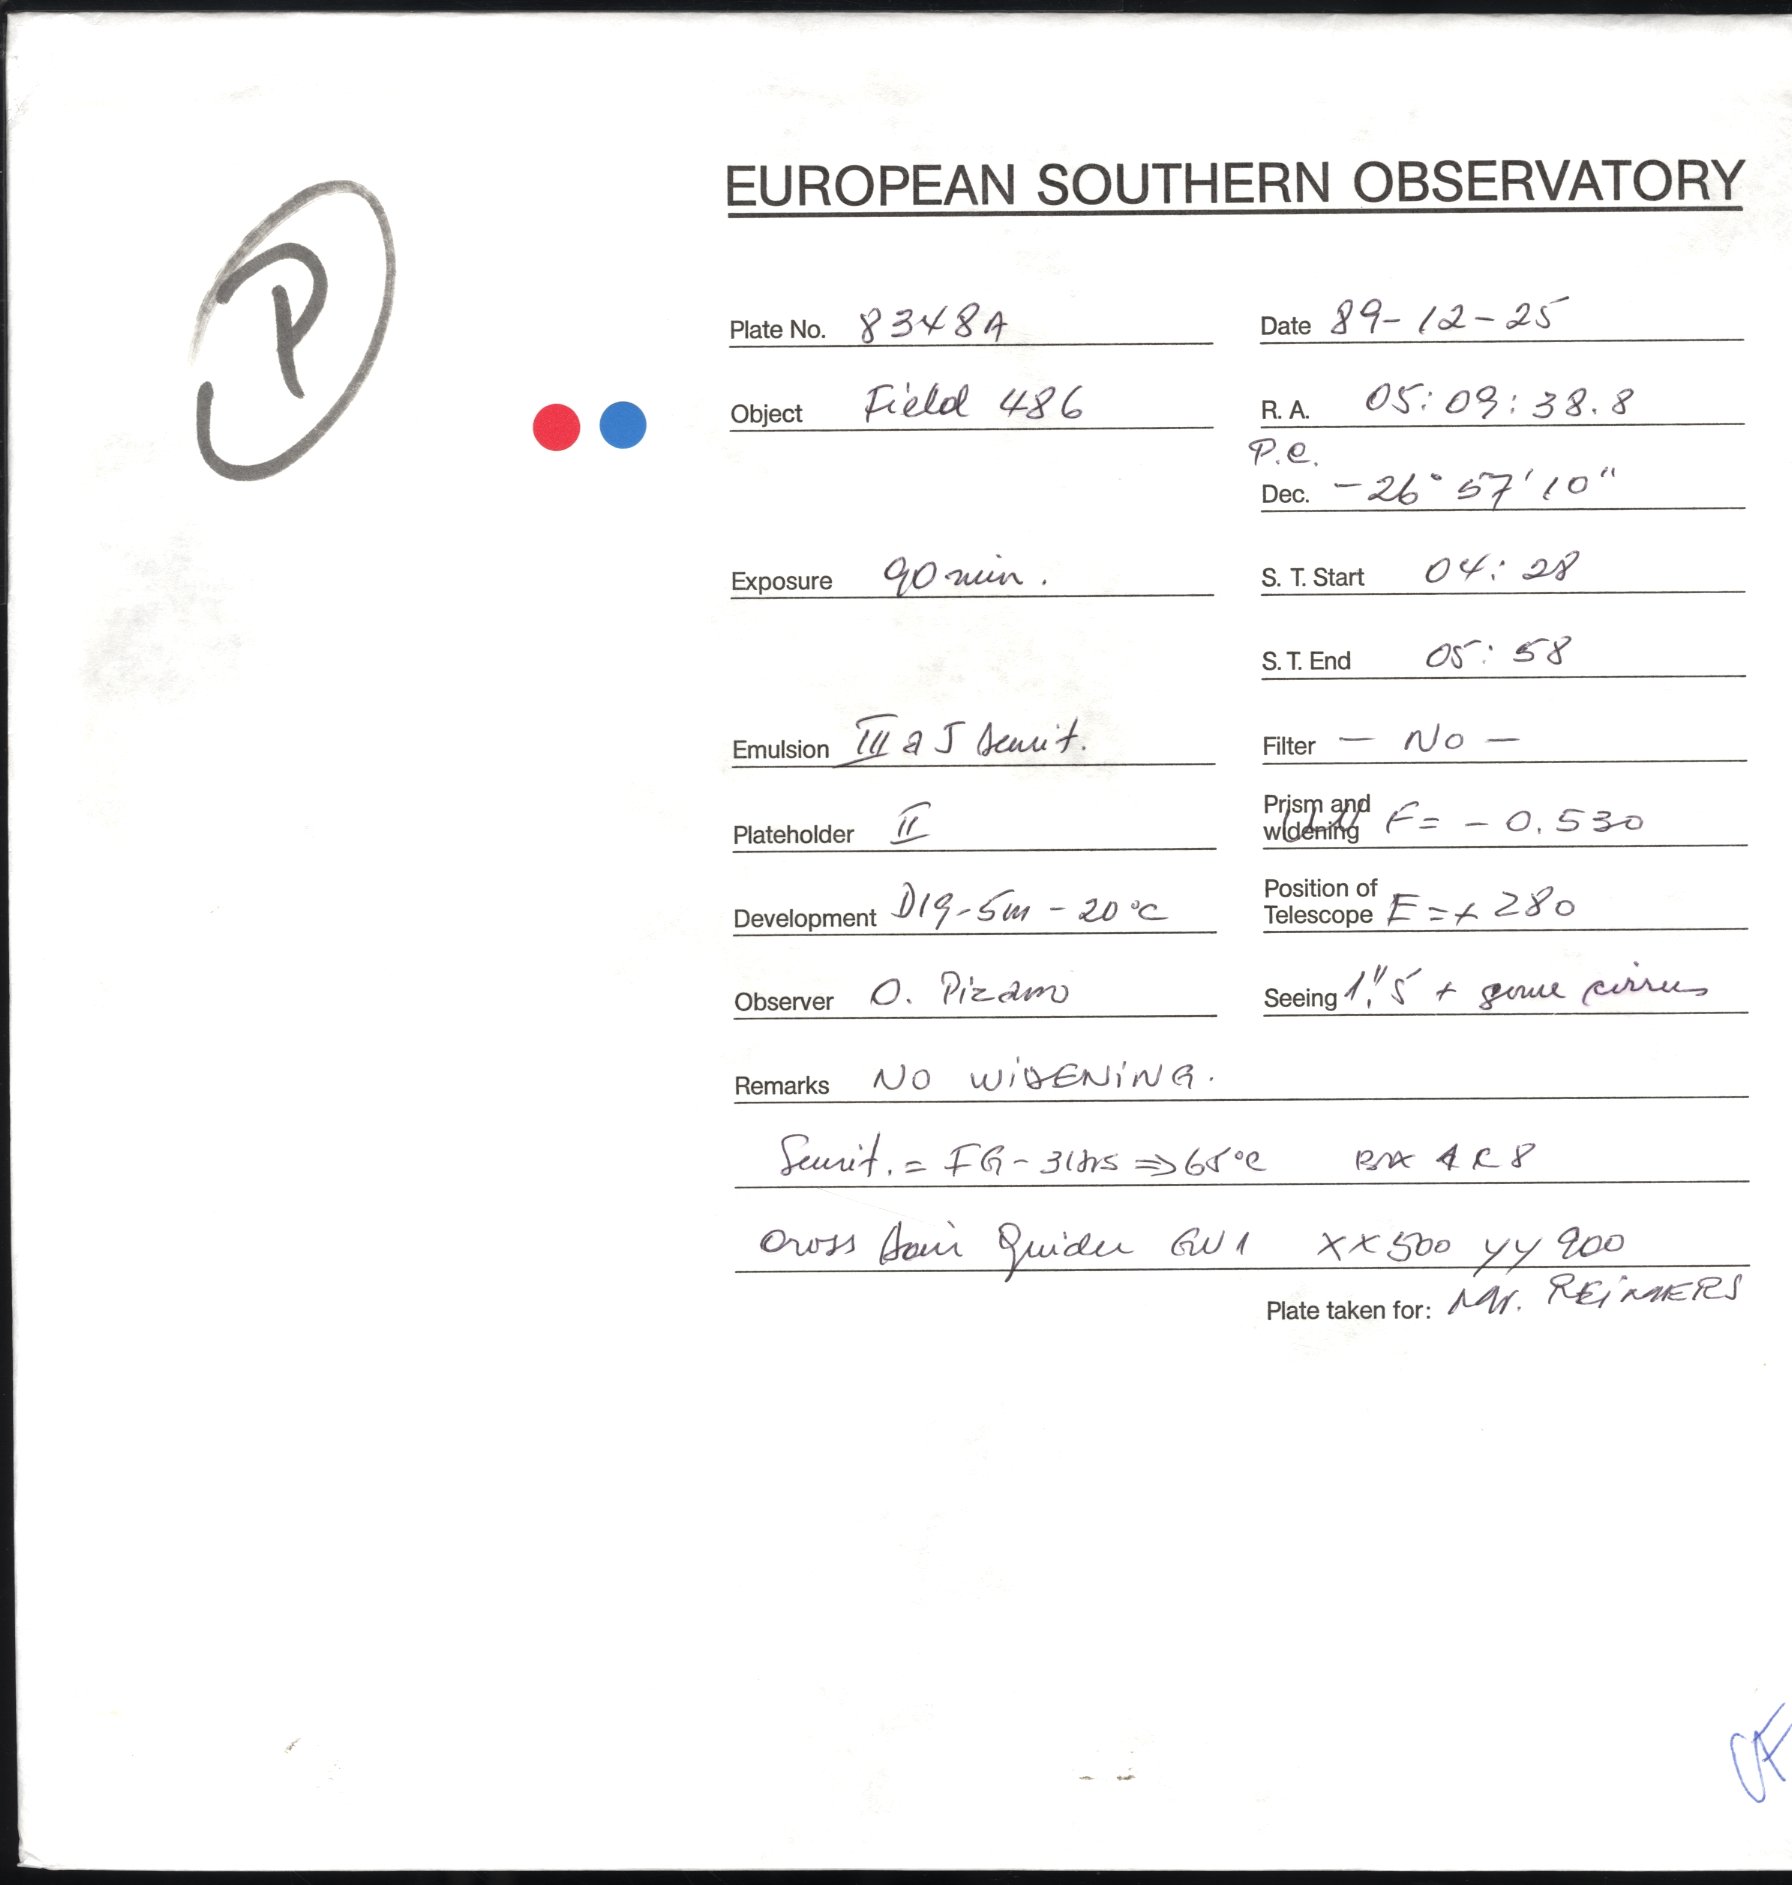 P
EUROPEAN SOUTHERN OBSERVATORY
Plate No. 8348A Date 89-12-25
Object Field 486 R. A. 05:09:38.8
P.e.
Dec. -26° 57' 10"
Exposure 90 min. S. T. Start 04:28
S. T. End 05:58
Emulsion III a J sensit. Filter - No -
Plateholder II Prism and widening F= - 0.530
Development D19-5m-20°c Position of Telescope E=+280
Observer O. Pizarro Seeing 1."5 + some cirrus
Remarks NO WIDENING.
Sensit. = FG-3hrs ⇒65°c
Cross hair Guider GW1 XX500 yy 900
Plate taken for: Mr. REIMERS